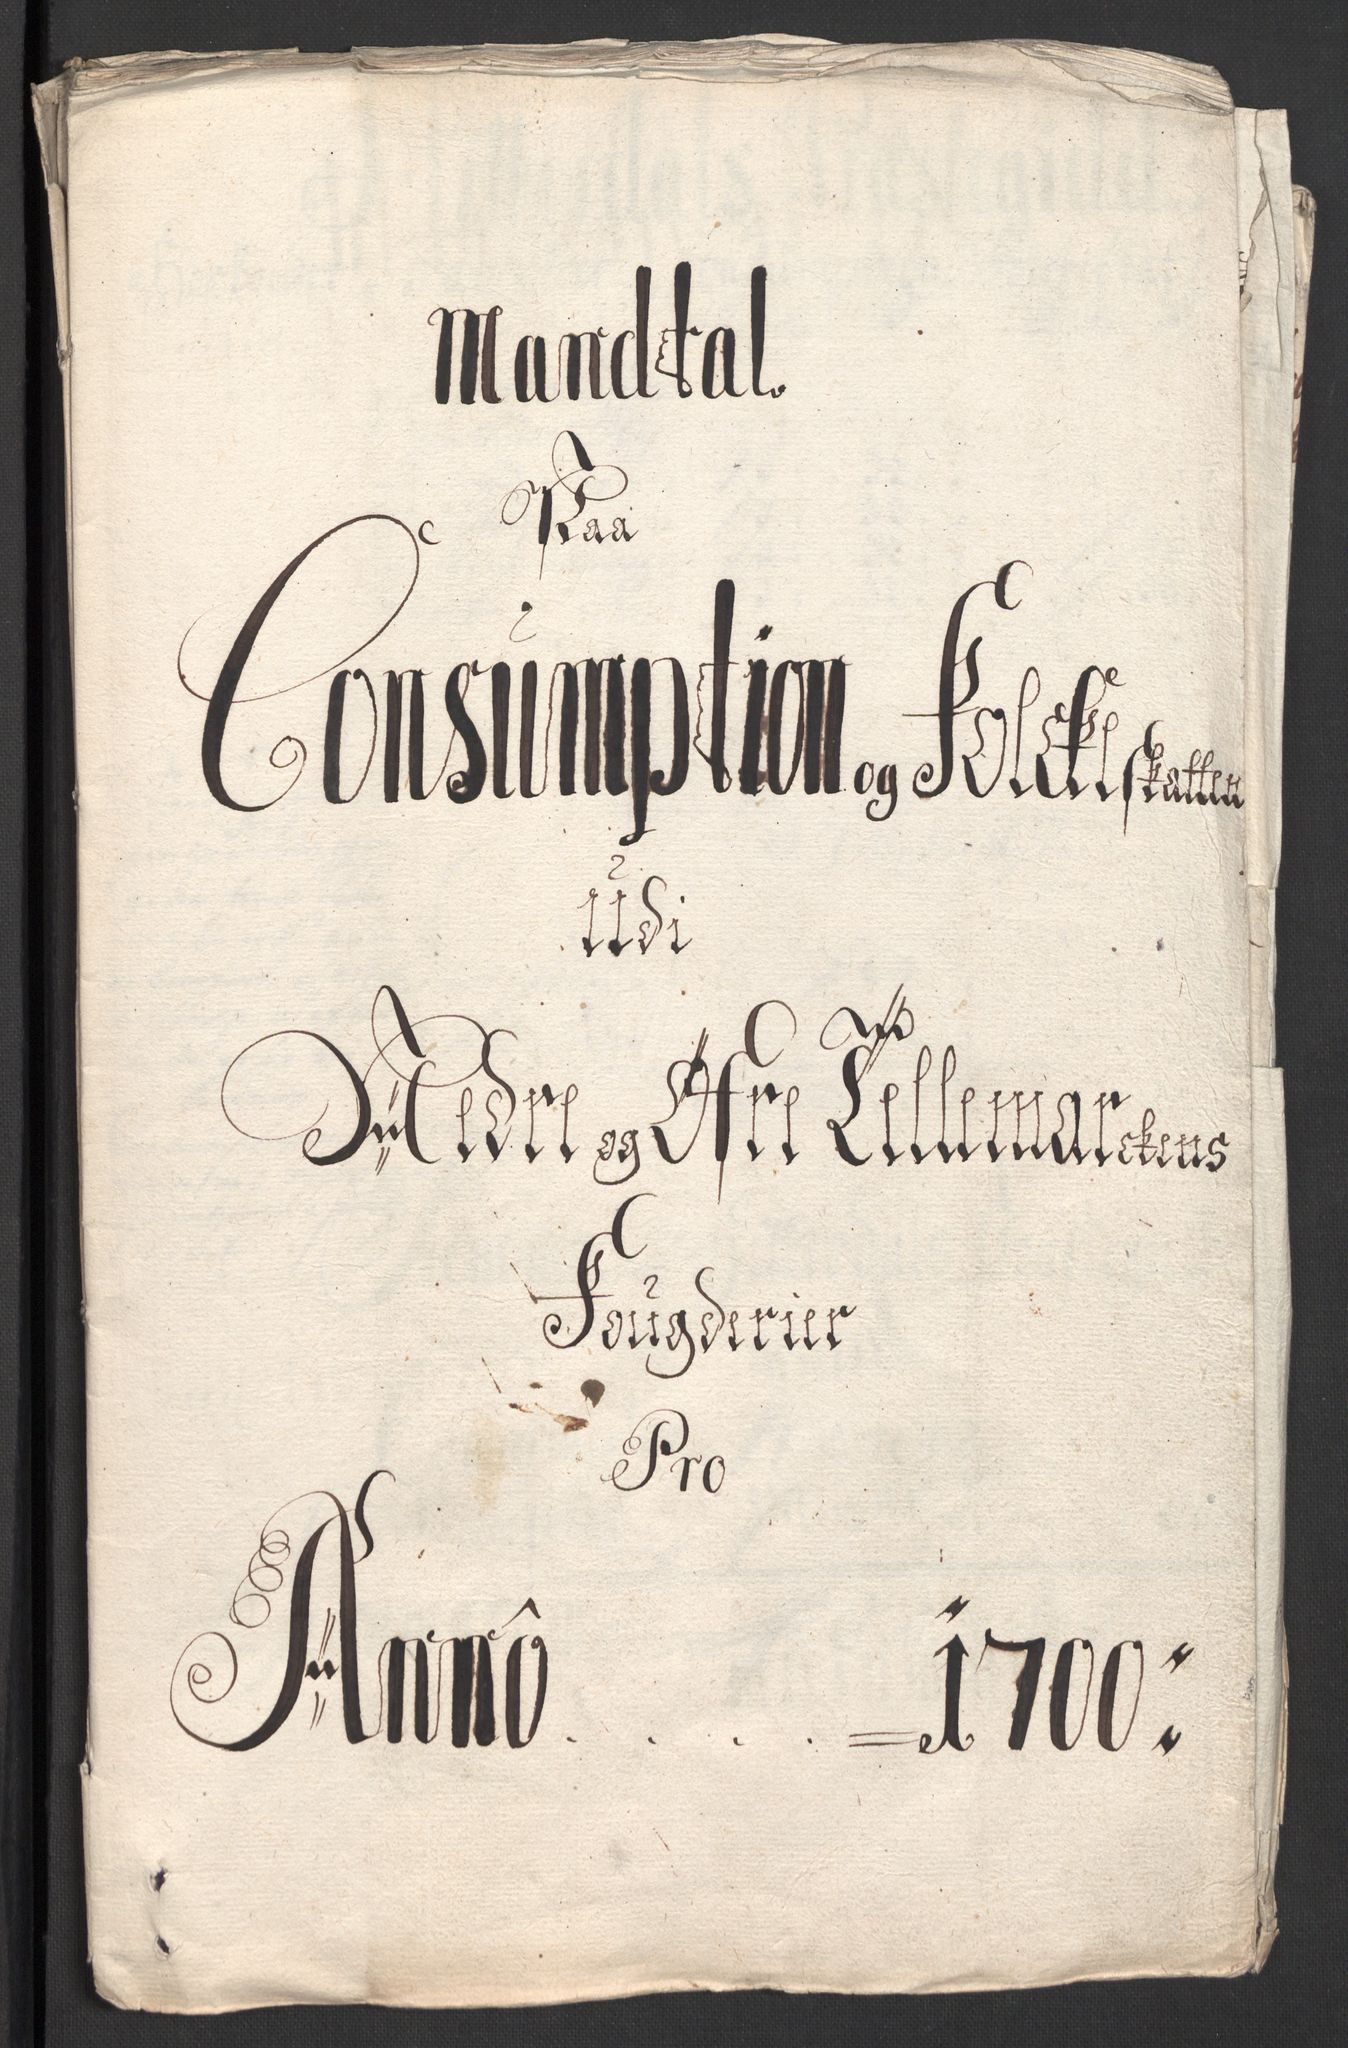 Mandtal.
Paa
Consumption og Folcke skatten
udi
Nedre og Øfre Tellemarckens
Fougderier
Pro
Annô . . . . = 1700: